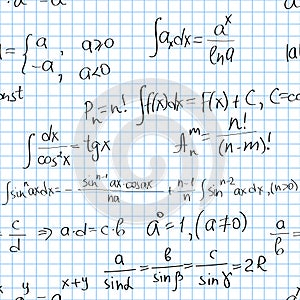 a -a
= { a, a≥0
-a, a<0
∫axdx = a^x / lna
la
const
P_n = n!
∫f(x)dx = F(x) + C, C=co
∫ dx / cos²x = tgx
A_n^m = n! / (n-m)!
∫sin^n axdx = - sin^(n-1) ax·cosax / na + n-1 / n ∫sin^(n-2) axdx, (n>0)
c / d ⇒ a·d = c·b
a⁰ = 1, (a≠0)
a / b =
x+y x+y
a / sinα = b / sinβ = c / sinγ = 2R